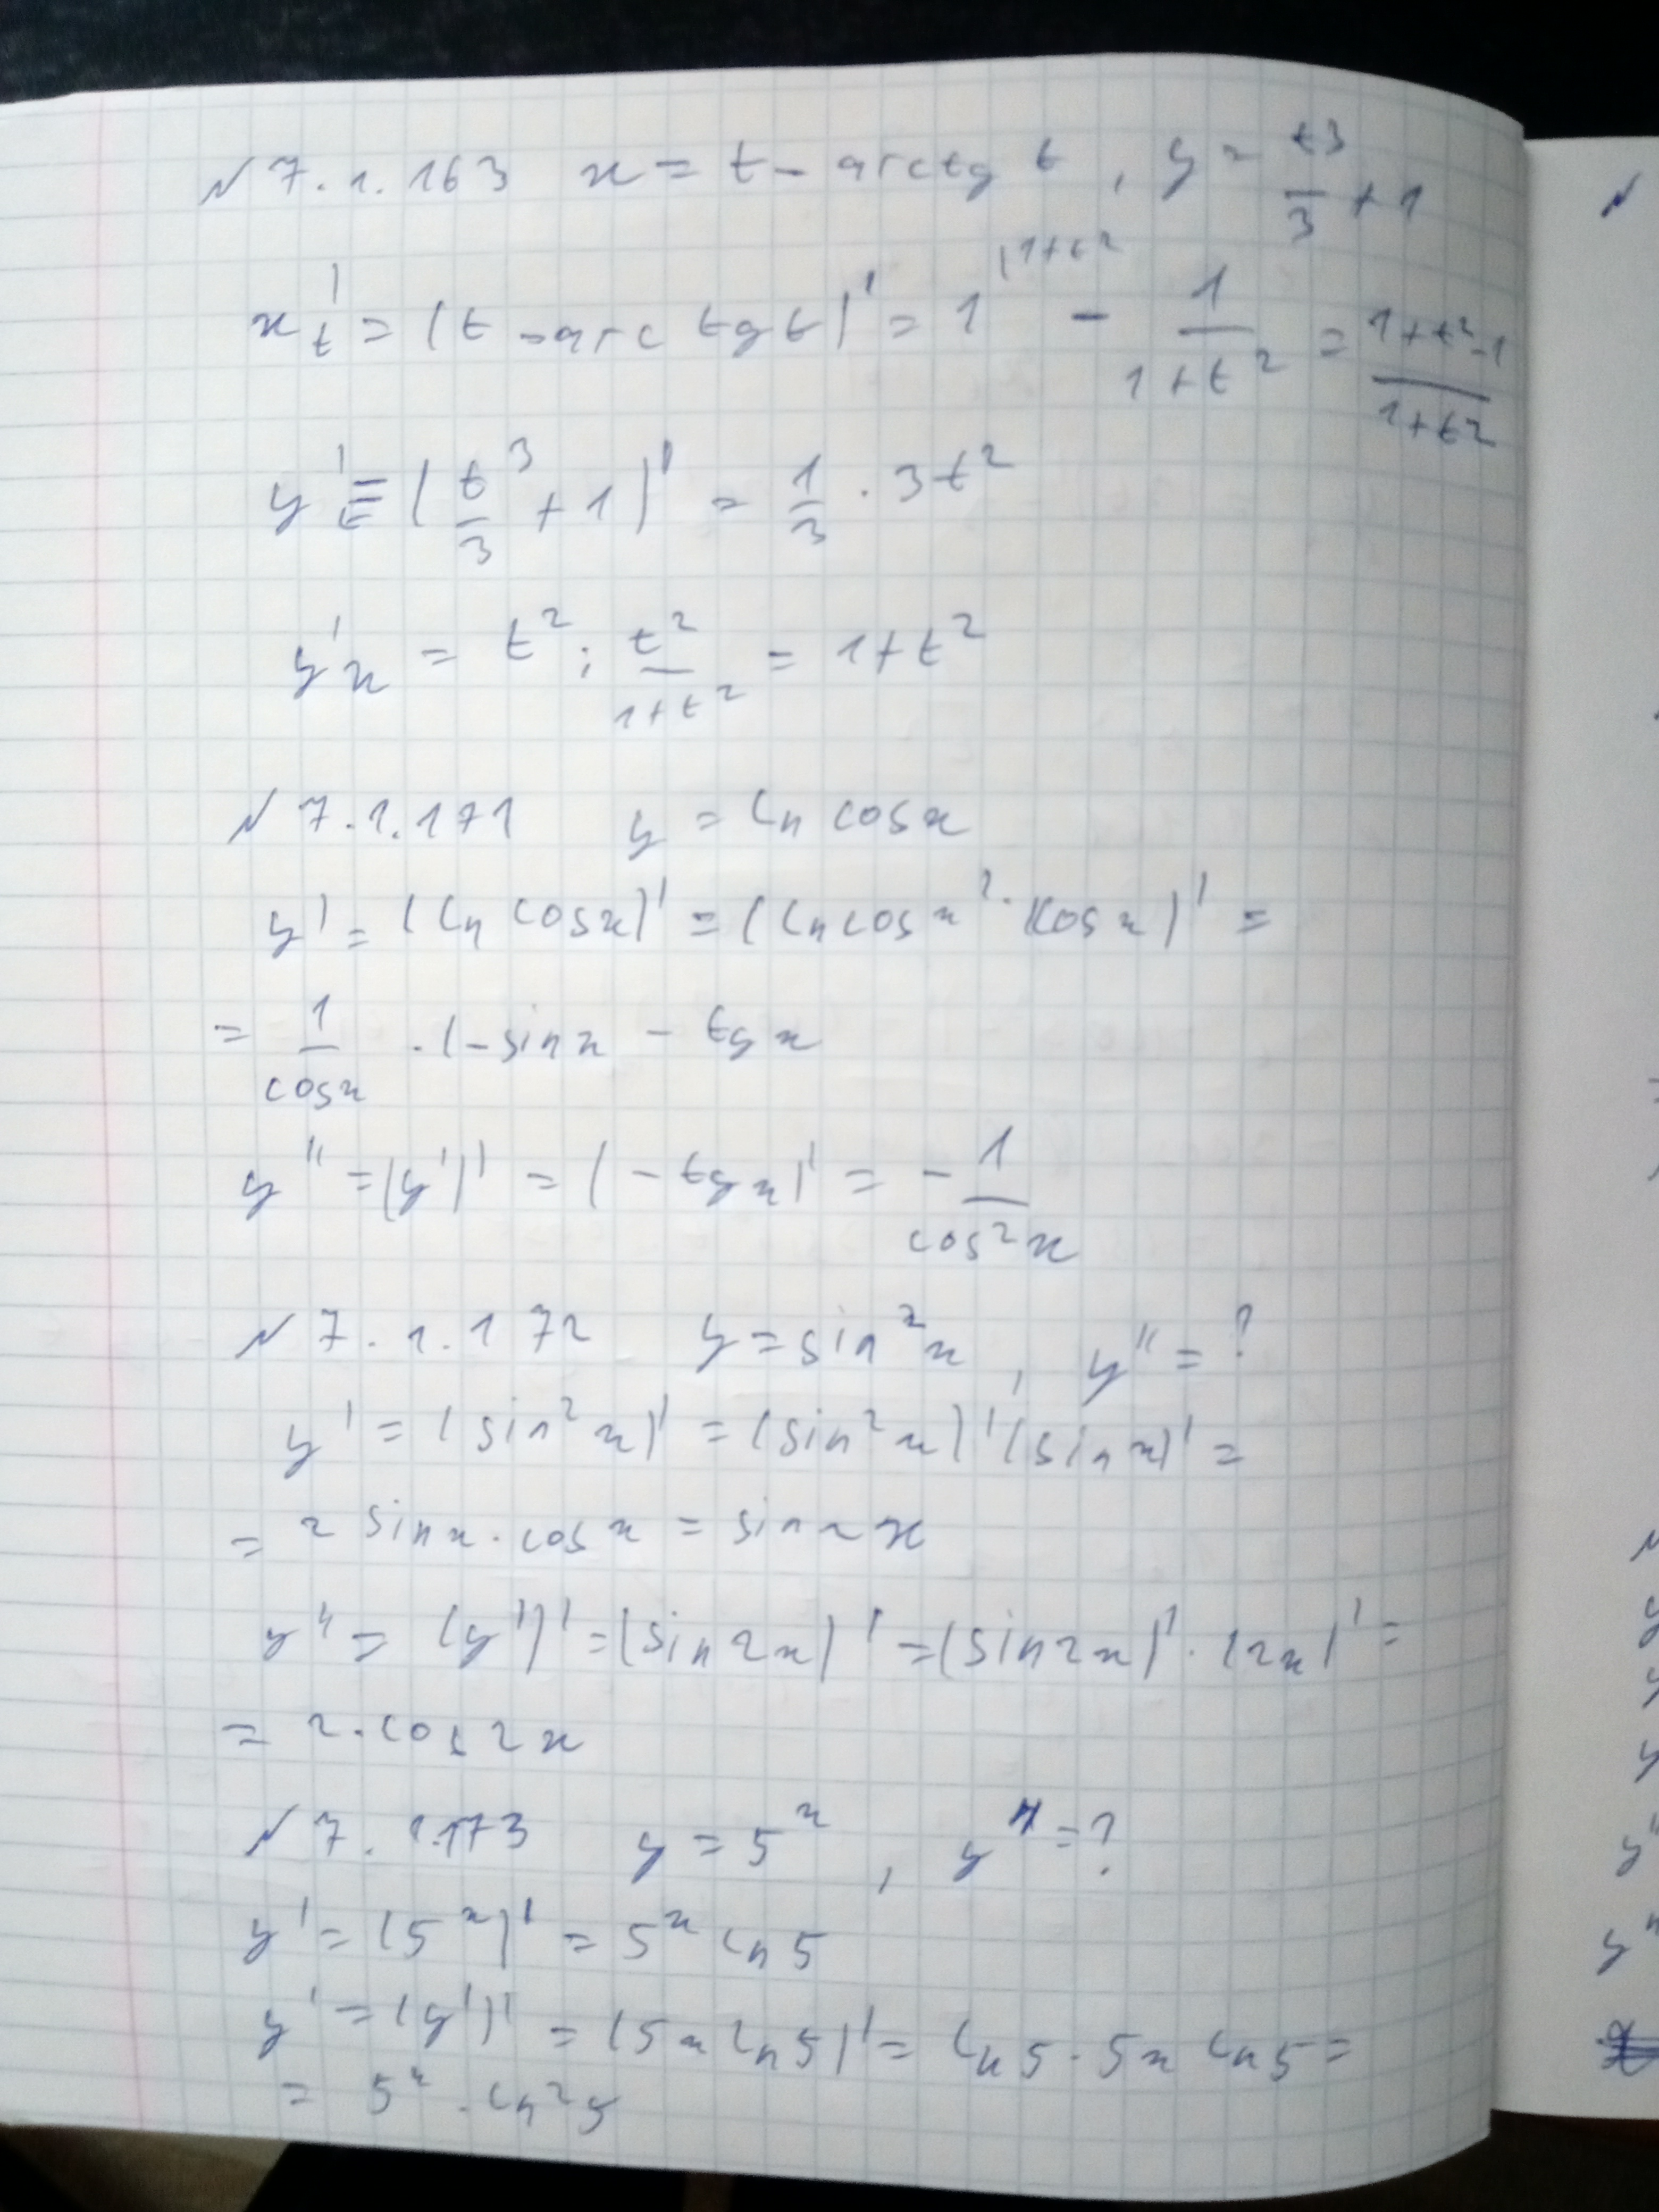 № 7.1.163 x = t - arctg t, y = t³/3 + 1
x't = (t - arctg t)' = 1^(1+t² - 1/(1+t²) = (1+t²-1)/(1+t²)
y't = (t³/3 + 1)' = 1/3 · 3t²
y'x = t² : t²/(1+t²) = 1+t²
№ 7.1.171 y = ln cosx
y' = (ln cosx)' = (ln cosx)' · (cosx)' =
= 1/cosx · (-sinx - tgx
y'' = (y')' = (-tgx)' = - 1/cos²x
№ 7.1.172 y = sin²x, y'' = ?
y' = (sin²x)' = (sin²x)'(sinx)' =
= 2 sinx · cosx = sin2x
y'' = (y')' = (sin2x)' = (sin2x)' · (2x)' =
= 2 · cos2x
№ 7.1.173 y = 5ˣ, y'' = ?
y' = (5ˣ)' = 5ˣ ln5
y' = (y')' = (5x ln5)' = ln5 · 5x ln5 =
= 5ˣ · ln²5